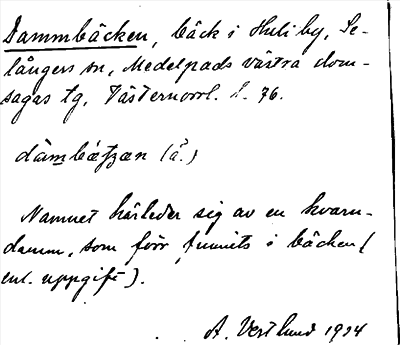 Dammbäcken, bäck i Huli by, Se-
långers sn, Medelpads västra dom-
sagas tg, Västernorrl. l. 76.
dàmbæʈʂæn (a2.)
Namnet härleder sig av en kvarn-
damm, som förr funnits i bäcken (
enl. uppgift).
A. Vestlund 1924